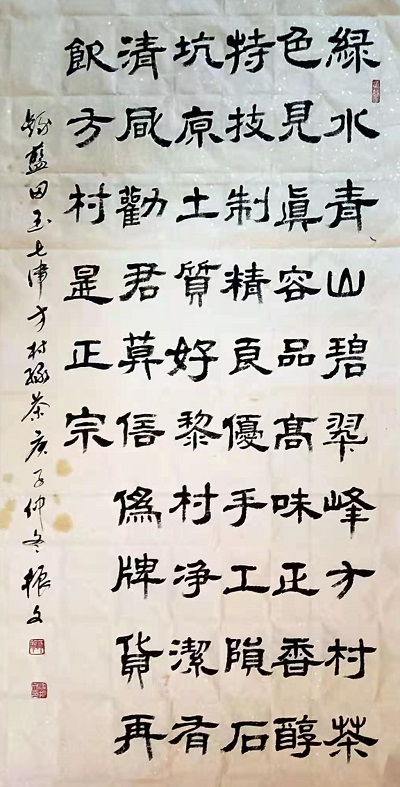 綠水青山碧翠峰方村茶
色見眞容品高味正香醇
特技制精良優手工隕石
坑原土質好黎村净潔有
清風勸君莫信僞牌貨再
飲方村是正宗
錄藍田玉七律方村綠茶庚子仲冬振文